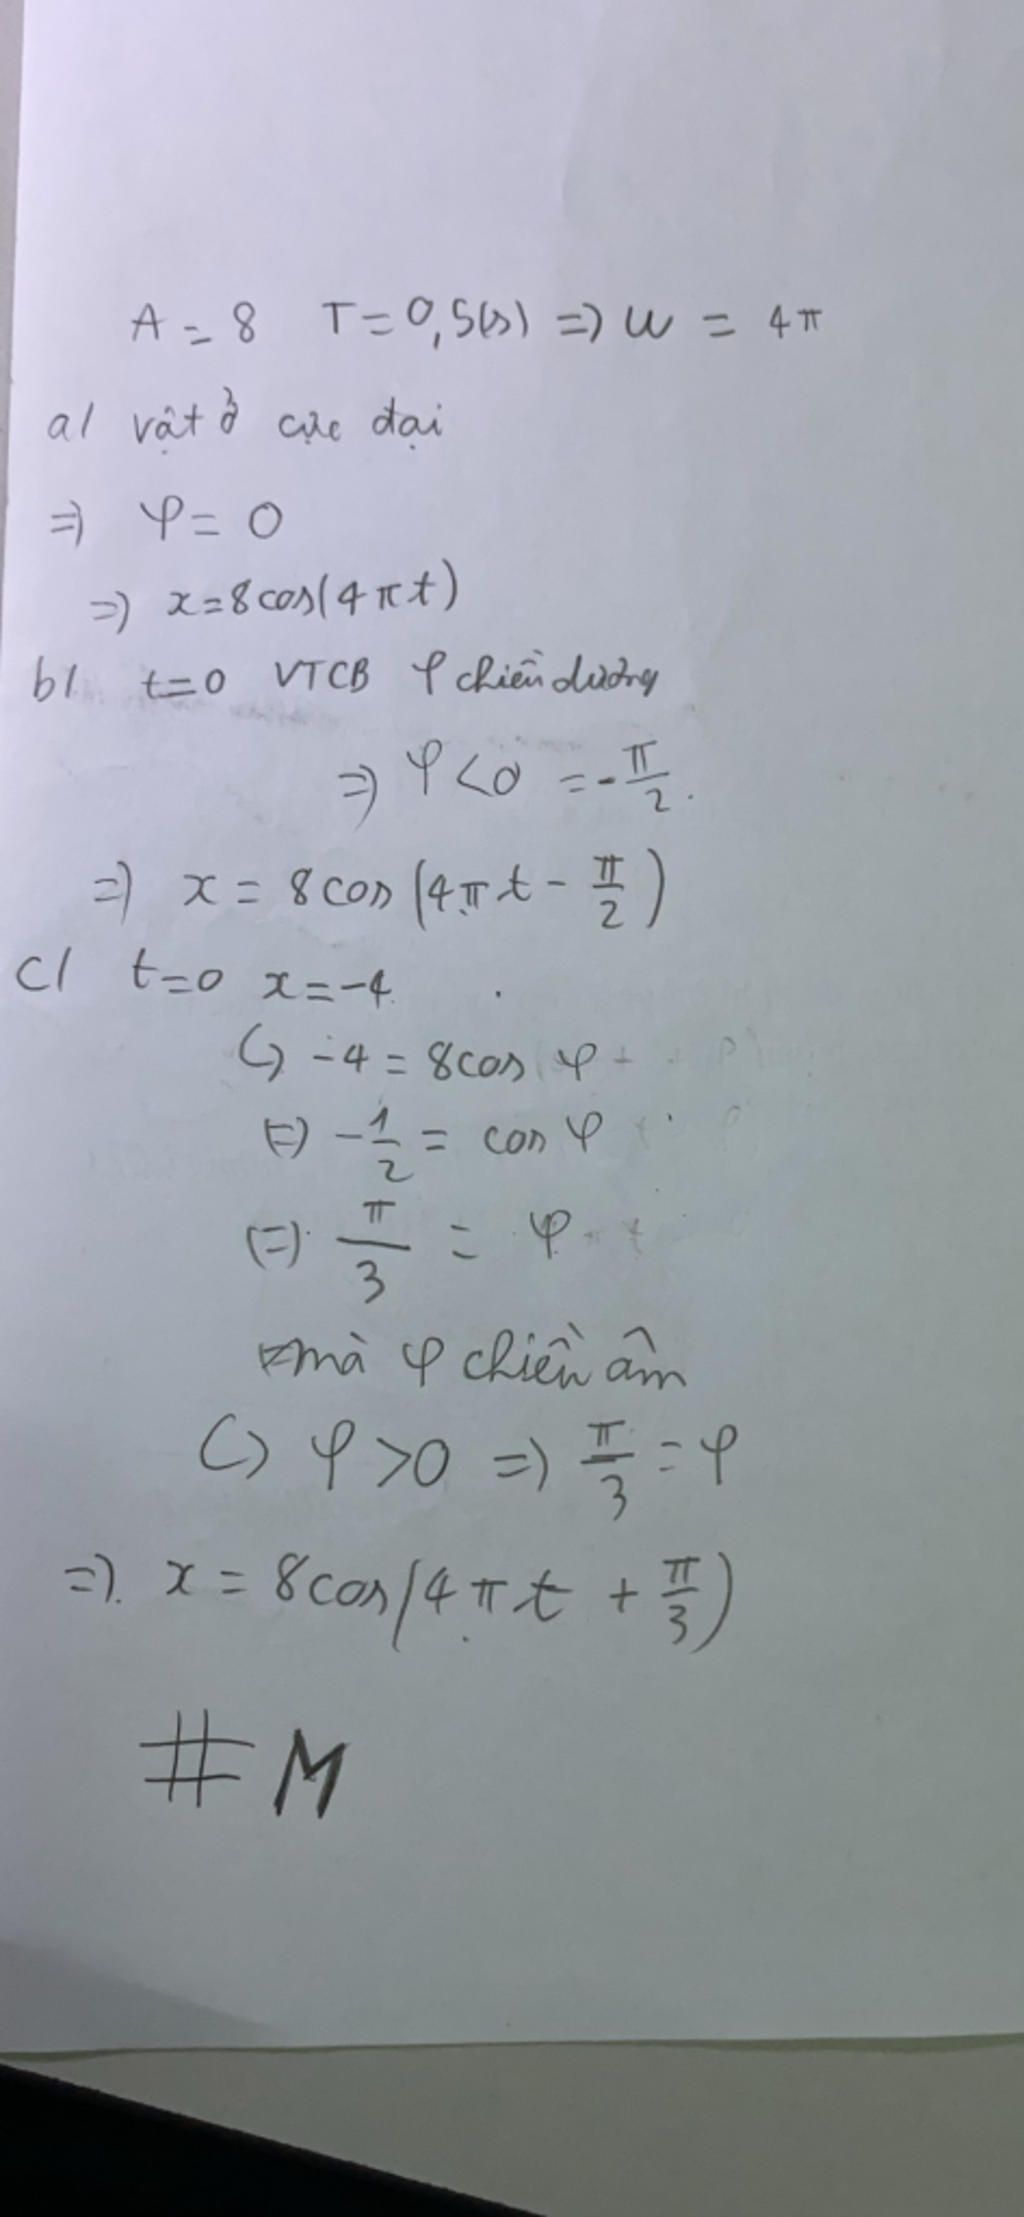 A = 8 T = 0,5(s) => w = 4π
a/ vật ở cực đại
=> φ = 0
=> x = 8cos(4πt)
b/ t=0 VTCB φ chiều dương
=> φ < 0 = -π/2.
=> x = 8cos(4πt - π/2)
c/ t=0 x=-4
(=) -4 = 8cos φ
(=) -1/2 = cos φ
(=) π/3 = φ
mà φ chiều âm
(=) φ > 0 => π/3 = φ
=> x = 8cos(4πt + π/3)
# M